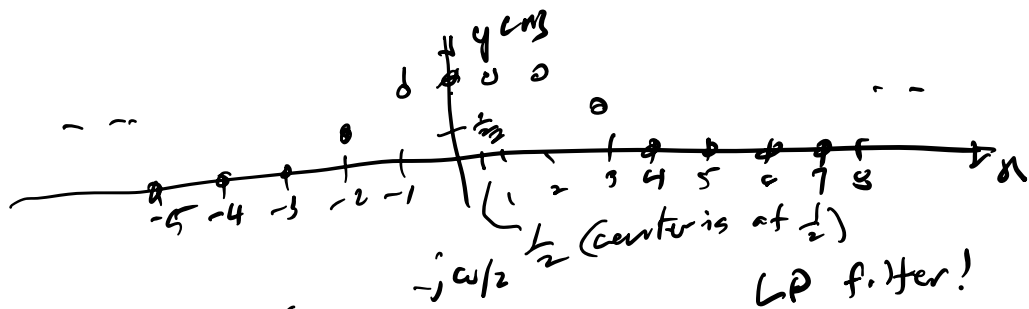 y[n]
-- --
-- --
1/2
-5 -4 -3 -2 -1 1 2 3 4 5 6 7 8 n
1/2 (center is at 1/2)
-jω/2
LP filter!